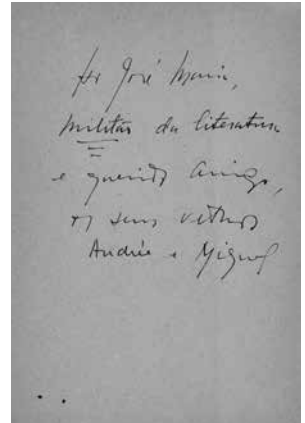 José Maria,
militar da literatura
e querido amigo,
os seus velhos
Andrée e Miguel